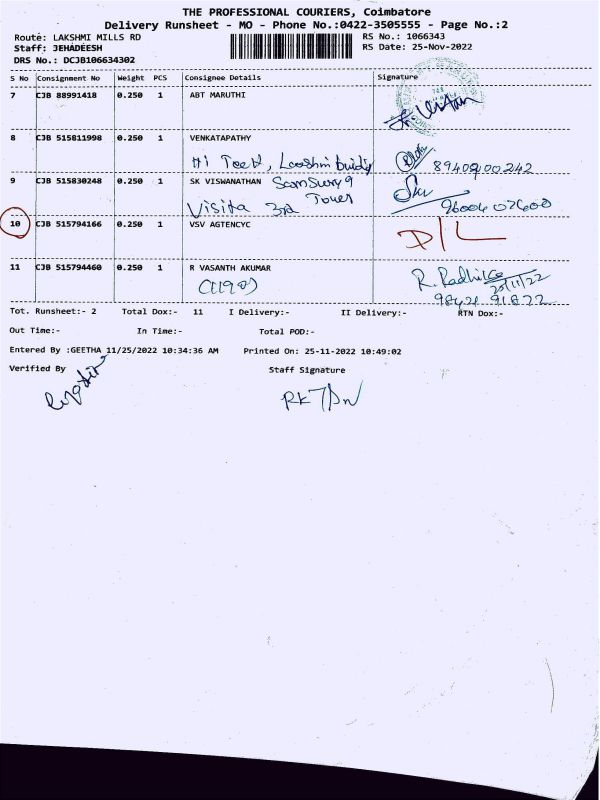 THE PROFESSIONAL COURIERS, Coimbatore
Delivery Runsheet - MO - Phone No.:0422-3505555 - Page No.:2
Route: LAKSHMI MILLS RD RS No.: 1066343
Staff: JEHADEESH RS Date: 25-Nov-2022
DRS No.: DCJB106634302
S No Consignment No Weight PCS Consignee Details Signature
7 CJB 88991418 0.250 1 ABT MARUTHI
8 CJB 515811998 0.250 1 VENKATAPATHY
Hi Teeh, 
9 CJB 515830248 0.250 1 SK VISWANATHAN Samsung
Visita 3rd Tower
10 CJB 515794166 0.250 1 VSV AGTENCYC D/L
11 CJB 515794460 0.250 1 R VASANTH AKUMAR
R. Radhika
Tot. Runsheet:- 2 Total Dox:- 11 I Delivery:- II Delivery:- RTN Dox:-
Out Time:- In Time:- Total POD:-
Entered By :GEETHA 11/25/2022 10:34:36 AM Printed On: 25-11-2022 10:49:02
Verified By Staff Signature